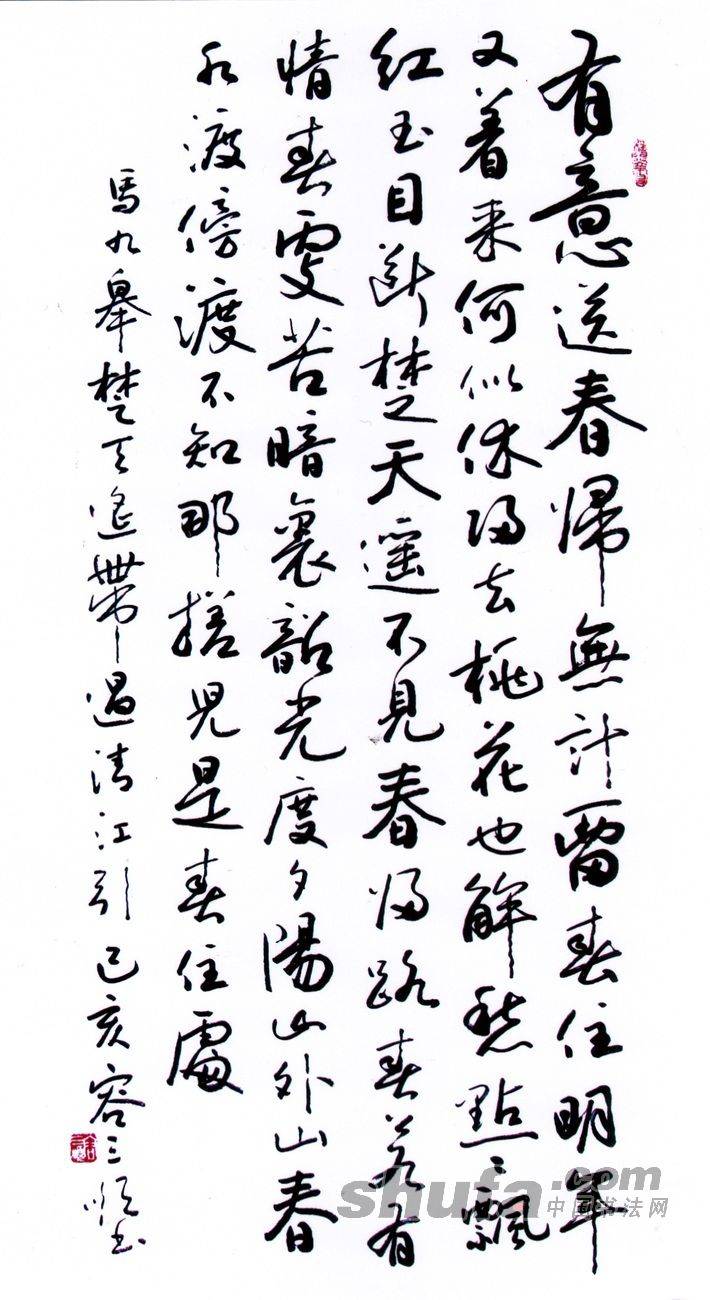 有意送春歸無計留春住明年
又着来何似休归去桃花也解愁點々飄
红玉目断楚天遥不見春归路春若有
情春更苦暗裏韶光度夕陽山外山春
水渡傍渡不知那搭兒是春住處
馬九皋楚天遥帶過清江引己亥容三順書
shufa.com
中国书法网